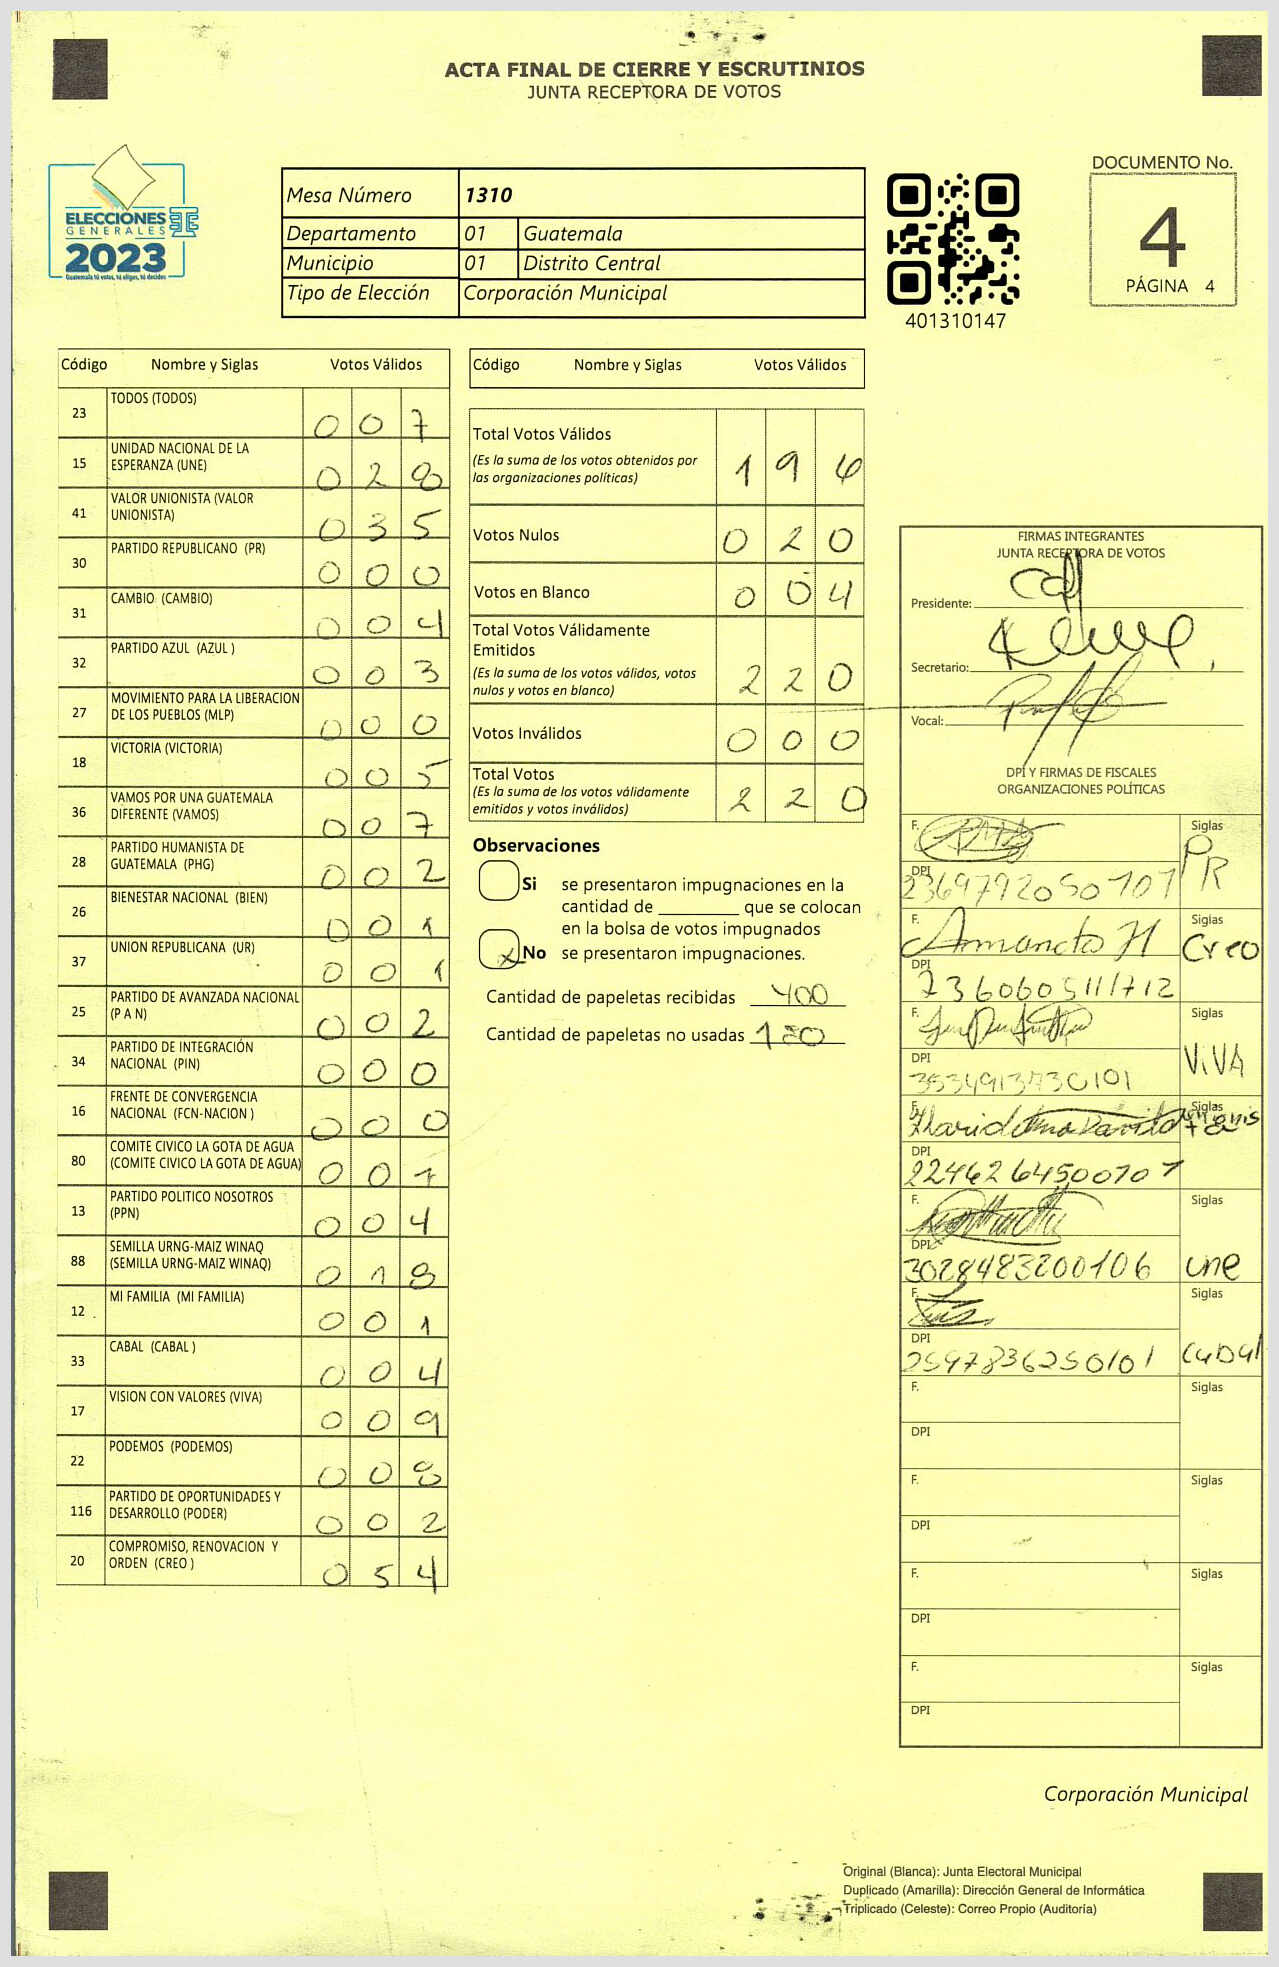 ACTA FINAL DE CIERRE Y ESCRUTINIOS
JUNTA RECEPTORA DE VOTOS
ELECCIONES
GENERALES
2023
Guatemala tú votas, tú eliges, tú decides
Mesa Número 1310
Departamento 01 Guatemala
Municipio 01 Distrito Central
Tipo de Elección Corporación Municipal
401310147
DOCUMENTO No.
4
PÁGINA 4
Código Nombre y Siglas Votos Válidos
23 TODOS (TODOS) 0 0 7
15 UNIDAD NACIONAL DE LA
ESPERANZA (UNE) 0 2 8
41 VALOR UNIONISTA (VALOR
UNIONISTA) 0 3 5
30 PARTIDO REPUBLICANO (PR) 0 0 0
31 CAMBIO (CAMBIO) 0 0 4
32 PARTIDO AZUL (AZUL ) 0 0 3
27 MOVIMIENTO PARA LA LIBERACION
DE LOS PUEBLOS (MLP) 0 0 0
18 VICTORIA (VICTORIA) 0 0 5
36 VAMOS POR UNA GUATEMALA
DIFERENTE (VAMOS) 0 0 7
28 PARTIDO HUMANISTA DE
GUATEMALA (PHG) 0 0 2
26 BIENESTAR NACIONAL (BIEN) 0 0 1
37 UNION REPUBLICANA (UR) 0 0 1
25 PARTIDO DE AVANZADA NACIONAL
(P A N) 0 0 2
34 PARTIDO DE INTEGRACIÓN
NACIONAL (PIN) 0 0 0
16 FRENTE DE CONVERGENCIA
NACIONAL (FCN-NACION ) 0 0 0
80 COMITE CIVICO LA GOTA DE AGUA
(COMITE CIVICO LA GOTA DE AGUA) 0 0 1
13 PARTIDO POLITICO NOSOTROS
(PPN) 0 0 4
88 SEMILLA URNG-MAIZ WINAQ
(SEMILLA URNG-MAIZ WINAQ) 0 1 8
12 MI FAMILIA (MI FAMILIA) 0 0 1
33 CABAL (CABAL ) 0 0 4
17 VISION CON VALORES (VIVA) 0 0 9
22 PODEMOS (PODEMOS) 0 0 8
116 PARTIDO DE OPORTUNIDADES Y
DESARROLLO (PODER) 0 0 2
20 COMPROMISO, RENOVACION Y
ORDEN (CREO ) 0 5 4
Código Nombre y Siglas Votos Válidos
Total Votos Válidos
(Es la suma de los votos obtenidos por
las organizaciones políticas) 1 9 6
Votos Nulos 0 2 0
Votos en Blanco 0 0 4
Total Votos Válidamente
Emitidos
(Es la suma de los votos válidos, votos
nulos y votos en blanco) 2 2 0
Votos Inválidos 0 0 0
Total Votos
(Es la suma de los votos válidamente
emitidos y votos inválidos) 2 2 0
Observaciones
Si se presentaron impugnaciones en la
cantidad de ________ que se colocan
en la bolsa de votos impugnados
x No se presentaron impugnaciones.
Cantidad de papeletas recibidas 400
Cantidad de papeletas no usadas 180
FIRMAS INTEGRANTES
JUNTA RECEPTORA DE VOTOS
Presidente:
Secretario:
Vocal:
DPI Y FIRMAS DE FISCALES
ORGANIZACIONES POLÍTICAS
F. Siglas PR
DPI 2369792050101
F. Armando H Siglas Creo
DPI
F. Siglas VIVA
DPI
F. Siglas
DPI 2246264500101
F. Siglas une
DPI 3028483200106
F. Siglas CABAL
DPI 2597836250101
F. Siglas
DPI
F. Siglas
DPI
F. Siglas
DPI
F. Siglas
DPI
Corporación Municipal
Original (Blanca): Junta Electoral Municipal
Duplicado (Amarilla): Dirección General de Informática
Triplicado (Celeste): Correo Propio (Auditoría)